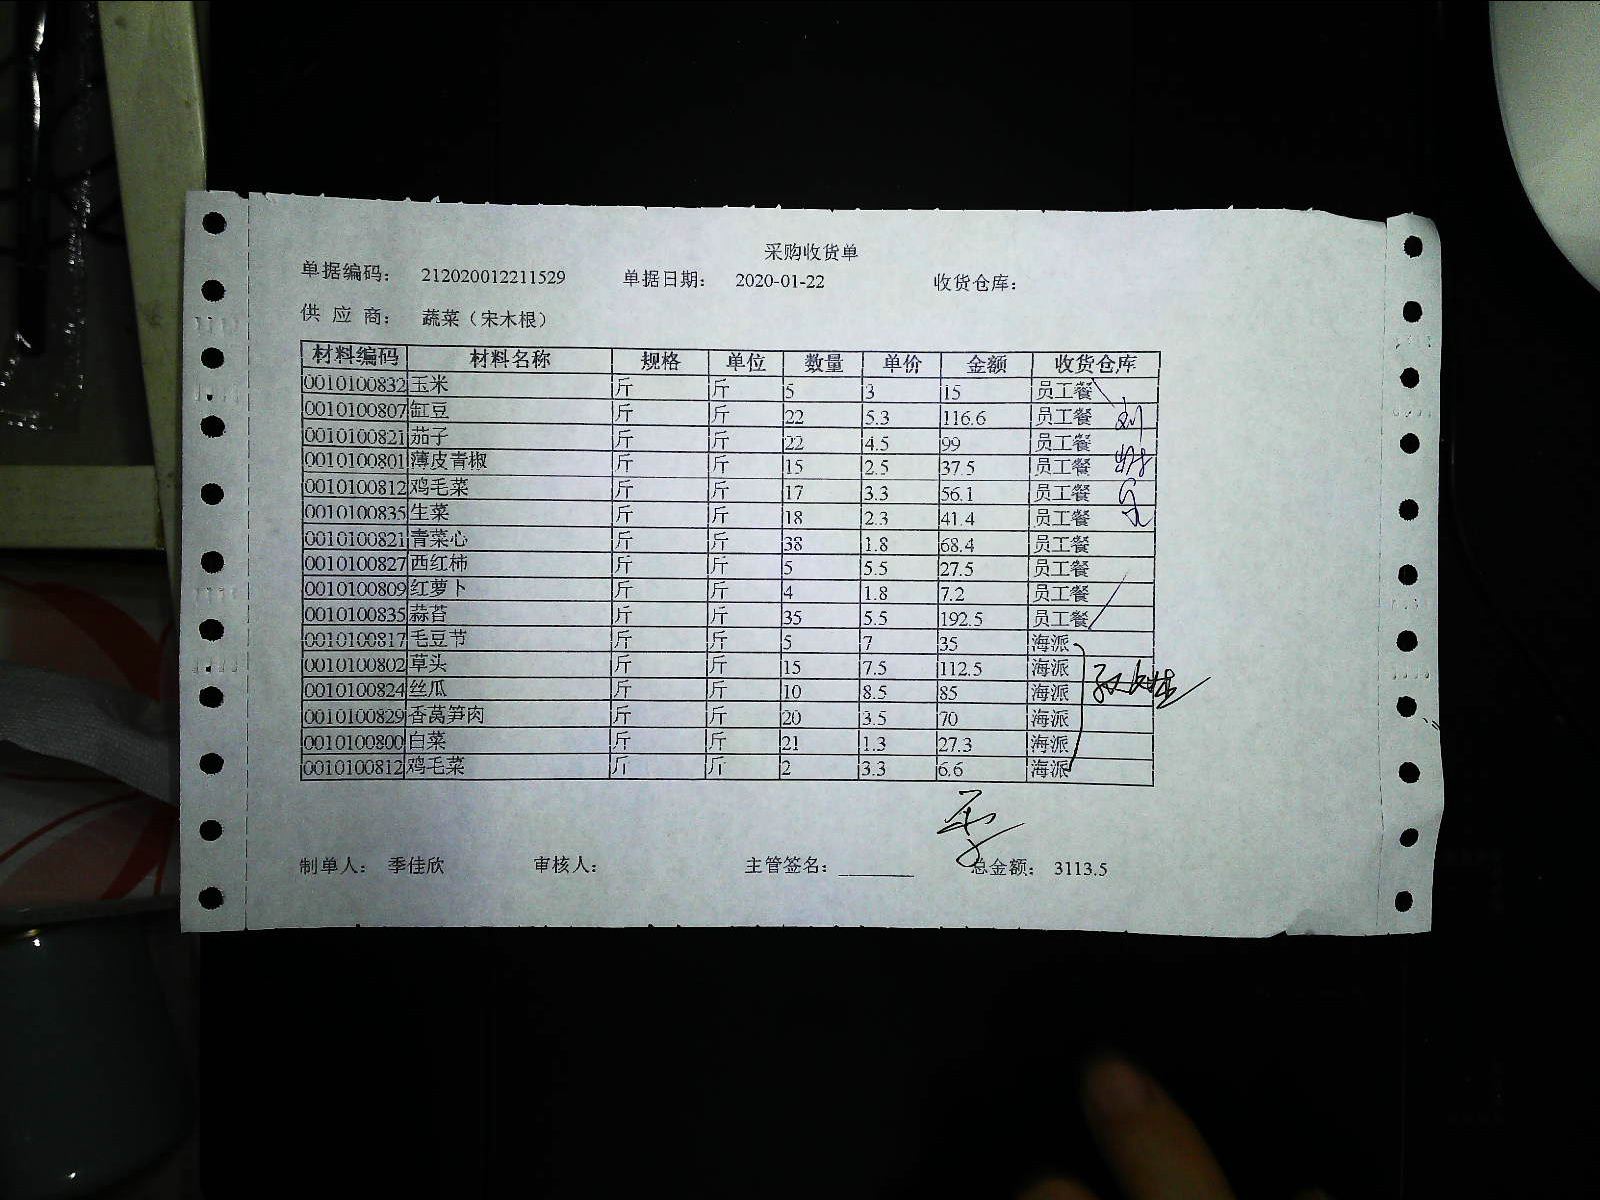 采购收货单
单据编码： 212020012211529 单据日期： 2020-01-22 收货仓库：
供 应 商： 蔬菜（宋木根）
材料编码 材料名称 规格 单位 数量 单价 金额 收货仓库
0010100832 玉米 斤 斤 5 3 15 员工餐
0010100807 缸豆 斤 斤 22 5.3 116.6 员工餐
0010100821 茄子 斤 斤 22 4.5 99 员工餐
0010100801 薄皮青椒 斤 斤 15 2.5 37.5 员工餐
0010100812 鸡毛菜 斤 斤 17 3.3 56.1 员工餐
0010100835 生菜 斤 斤 18 2.3 41.4 员工餐
0010100821 青菜心 斤 斤 38 1.8 68.4 员工餐
0010100827 西红柿 斤 斤 5 5.5 27.5 员工餐
0010100809 红萝卜 斤 斤 4 1.8 7.2 员工餐
0010100835 蒜苔 斤 斤 35 5.5 192.5 员工餐
0010100817 毛豆节 斤 斤 5 7 35 海派
0010100802 草头 斤 斤 15 7.5 112.5 海派
0010100824 丝瓜 斤 斤 10 8.5 85 海派
0010100829 香莴笋肉 斤 斤 20 3.5 70 海派
0010100800 白菜 斤 斤 21 1.3 27.3 海派
0010100812 鸡毛菜 斤 斤 2 3.3 6.6 海派
制单人： 季佳欣 审核人： 主管签名： 总金额： 3113.5